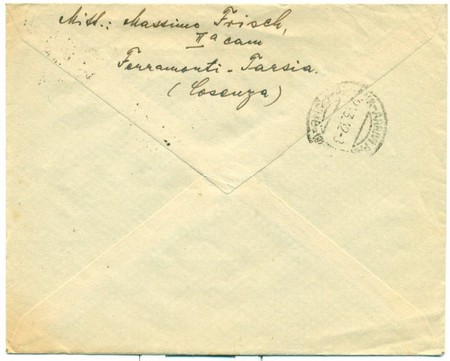 Mitt.: Massimo Frisch,
IIª cam
Ferramonti - Tarsia.
(Cosenza)